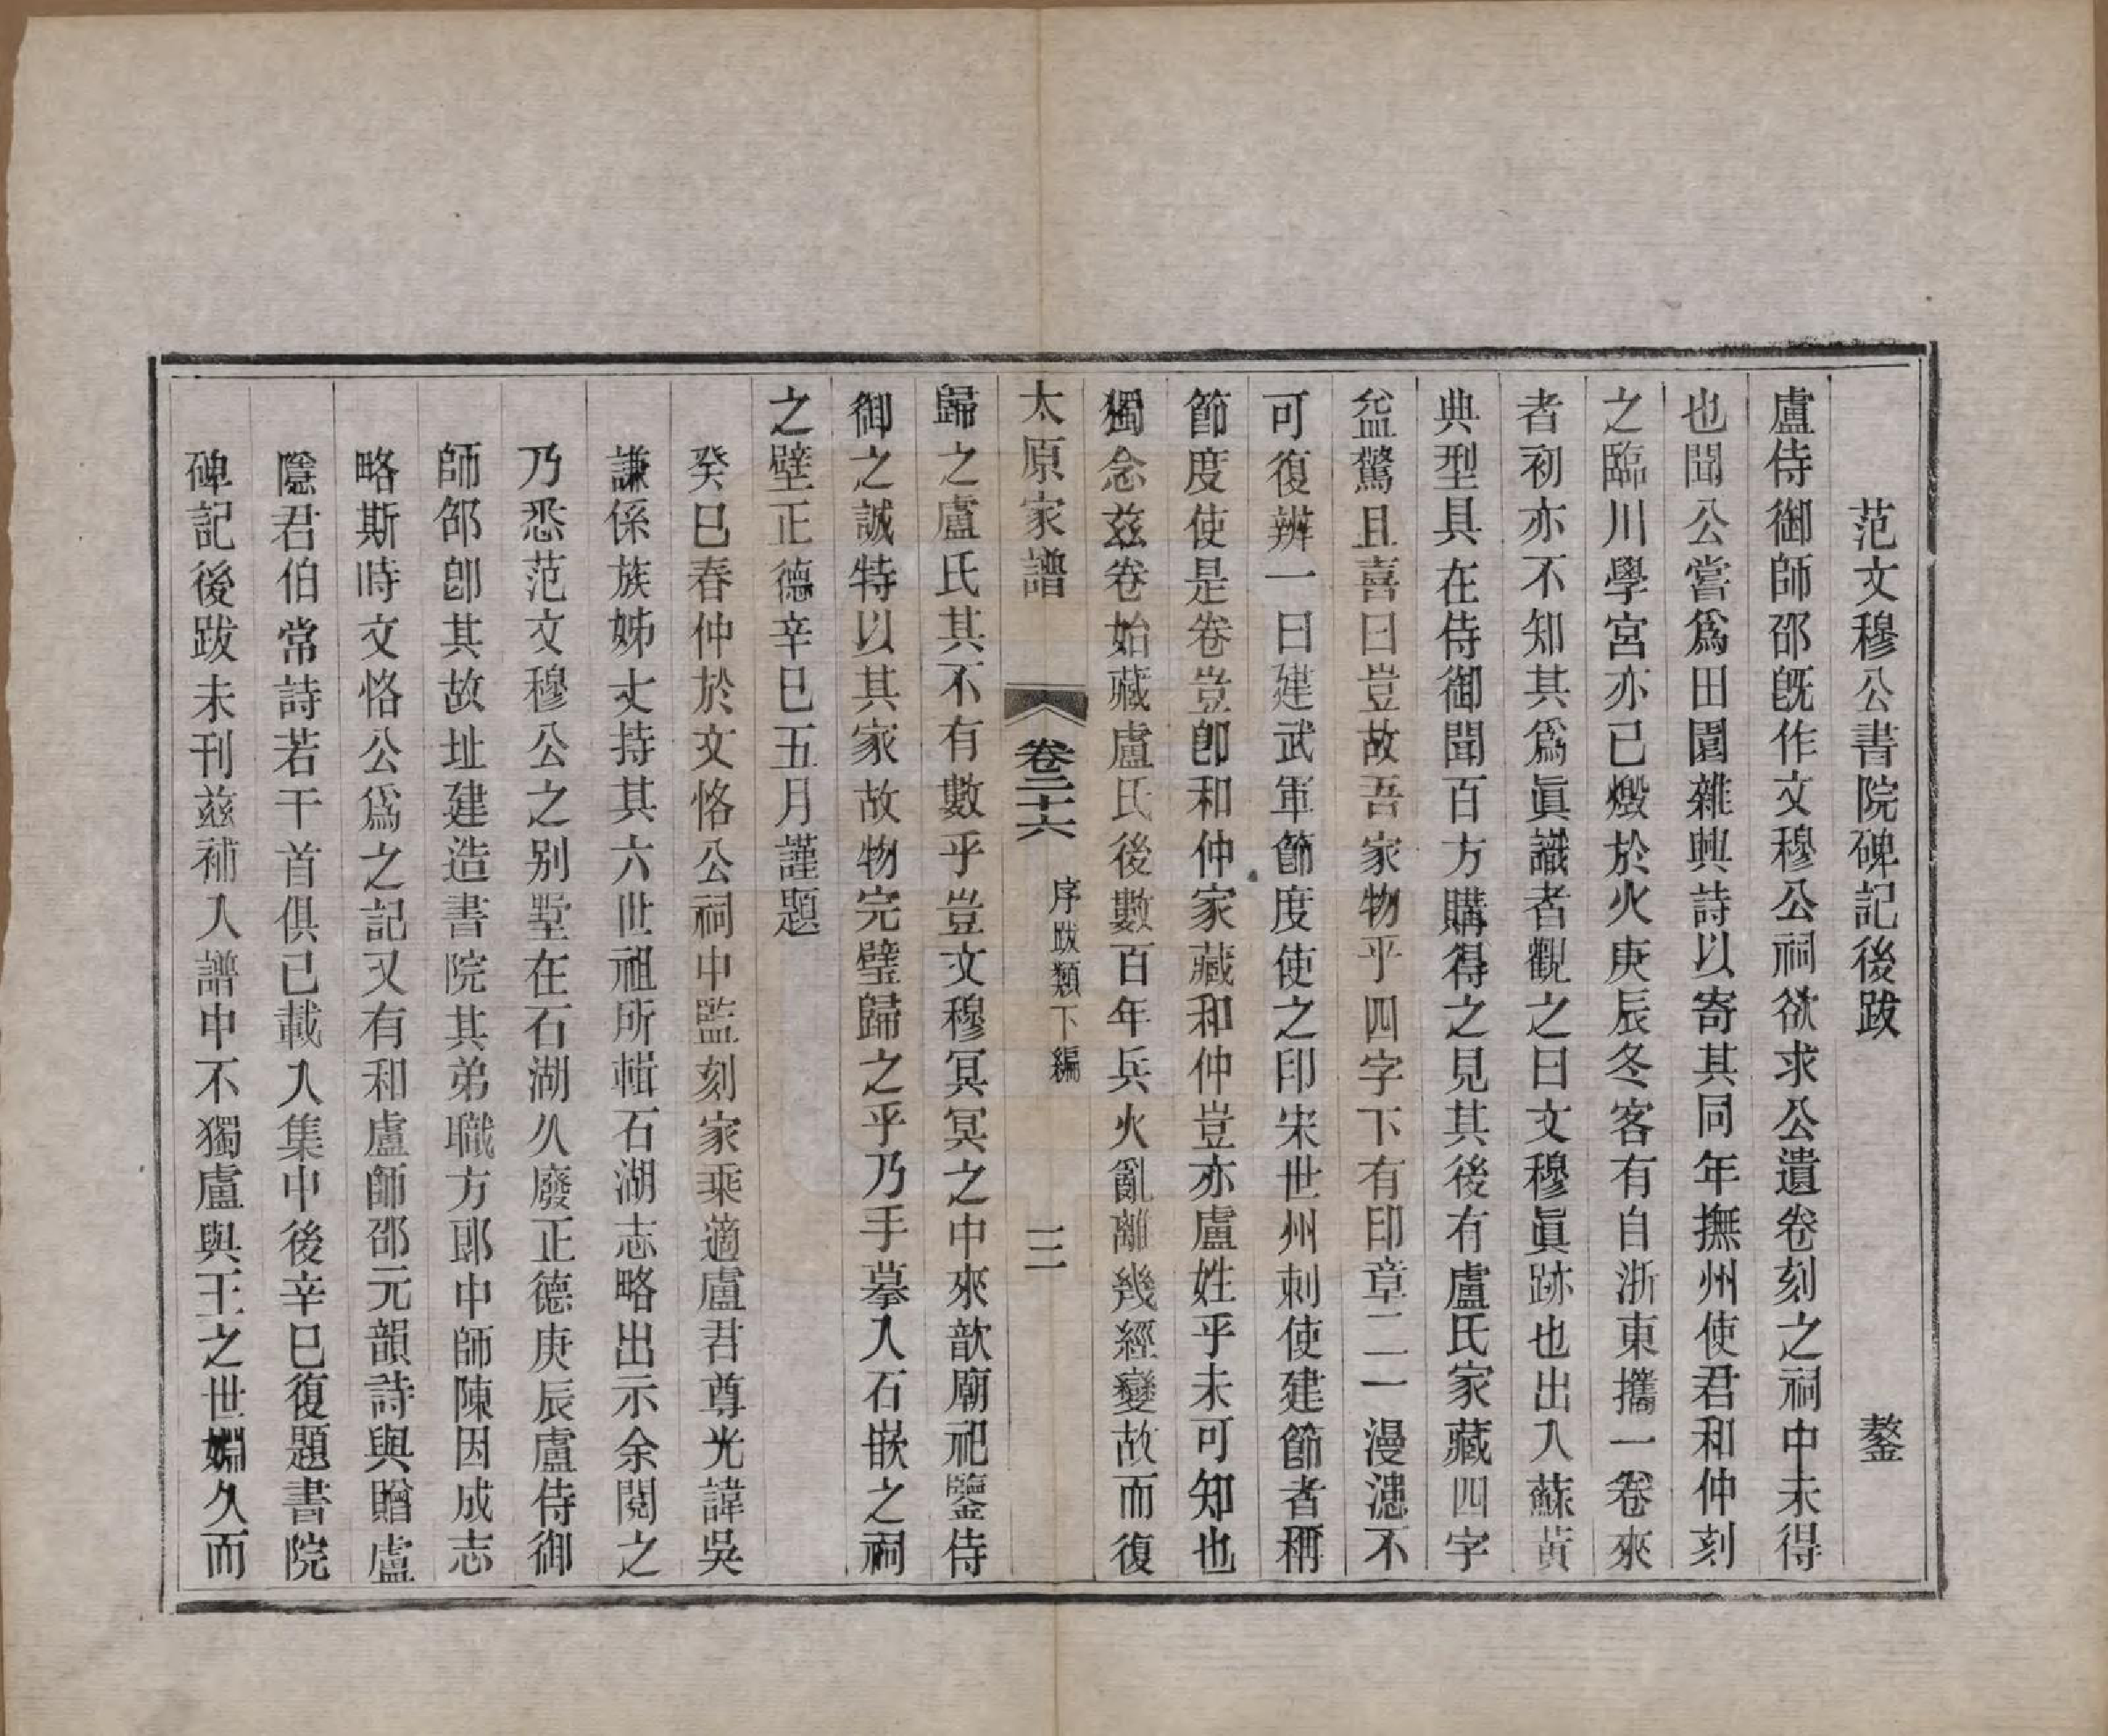 范文穆公書院碑記後跋　鏊
盧侍御師邵旣作文穆公祠欲求公遺卷刻之祠中未得
也聞公嘗爲田園雜興詩以寄其同年撫州使君和仲刻
之臨川學宮亦已燬於火庚辰冬客有自浙東攜一卷來
者初亦不知其爲眞識者觀之曰文穆眞跡也出入蘇黃
典型具在侍御聞百方購得之見其後有盧氏家藏四字
益驚且喜曰豈故吾家物乎四字下有印章二一漫漶不
可復辨一曰建武軍節度使之印宋世州刺使建節者稱
節度使是卷豈卽和仲家藏和仲豈亦盧姓乎未可知也
獨念茲卷始藏盧氏後數百年兵火亂離幾經變故而復
太原家譜　卷二十六　序跋類下編　三
歸之盧氏其不有數乎豈文穆冥冥之中來歆廟祀鑒侍
御之誠特以其家故物完璧歸之乎乃手摹入石嵌之祠
之壁正德辛巳五月謹題
癸巳春仲於文恪公祠中監刻家乘適盧君尊光諱吳
謙係族姊丈持其六世祖所輯石湖志略出示余閱之
乃悉范文穆公之别墅在石湖久廢正德庚辰盧侍御
師邵卽其故址建造書院其弟職方郎中師陳因成志
略斯時文恪公爲之記又有和盧師邵元韻詩與贈盧
隱君伯常詩若干首俱已載入集中後辛巳復題書院
碑記後跋未刊茲補入譜中不獨盧與王之世婣久而